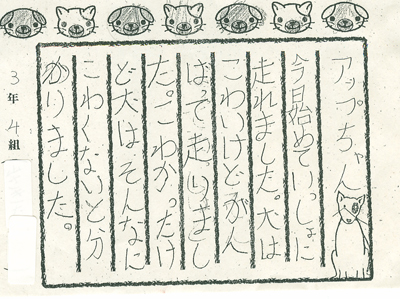 アップちゃん
今日始めていっしょに
走れました。犬は
こわいけどがん
ばって走りまし
た。こわかったけ
ど犬はそんなに
こわくないと分
かりました。
3年4組